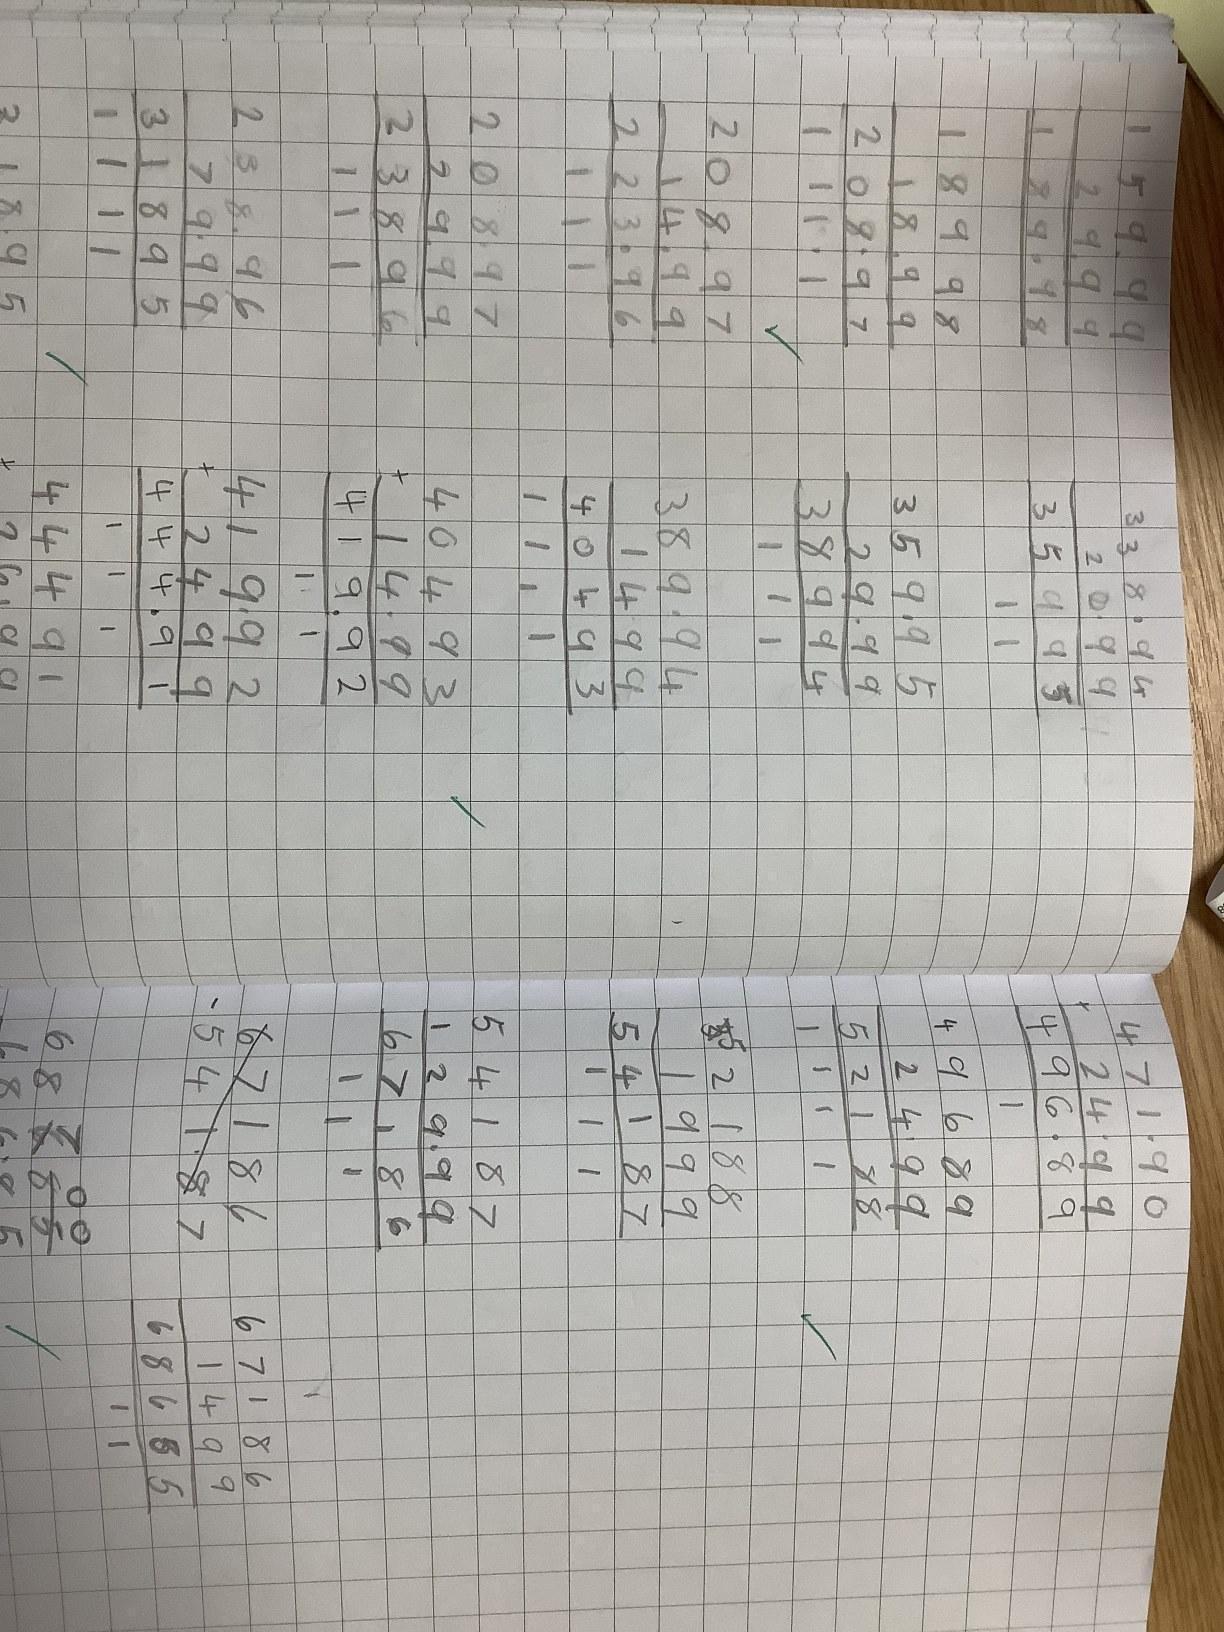 159.99
29.99
189.98
18998
18.99
208.97
111.1
208.97
14.99
223.96
111
208.97
29.99
238.96
111
238.96
79.99
318.95
1111
318.95
338.94
20.99
35993
11
359.95
29.99
38994
111
389.94
14.99
40493
1111
40493
+ 14.99
419.92
11
41992
+ 2499
444.91
111
44491
+ 26.99
471.90
+ 24.99
496.89
1
49689
24.99
52188
1111
52188
1999
54187
111
54187
129.99
67186
111
67186
- 541.87
67186
1499
68685
11